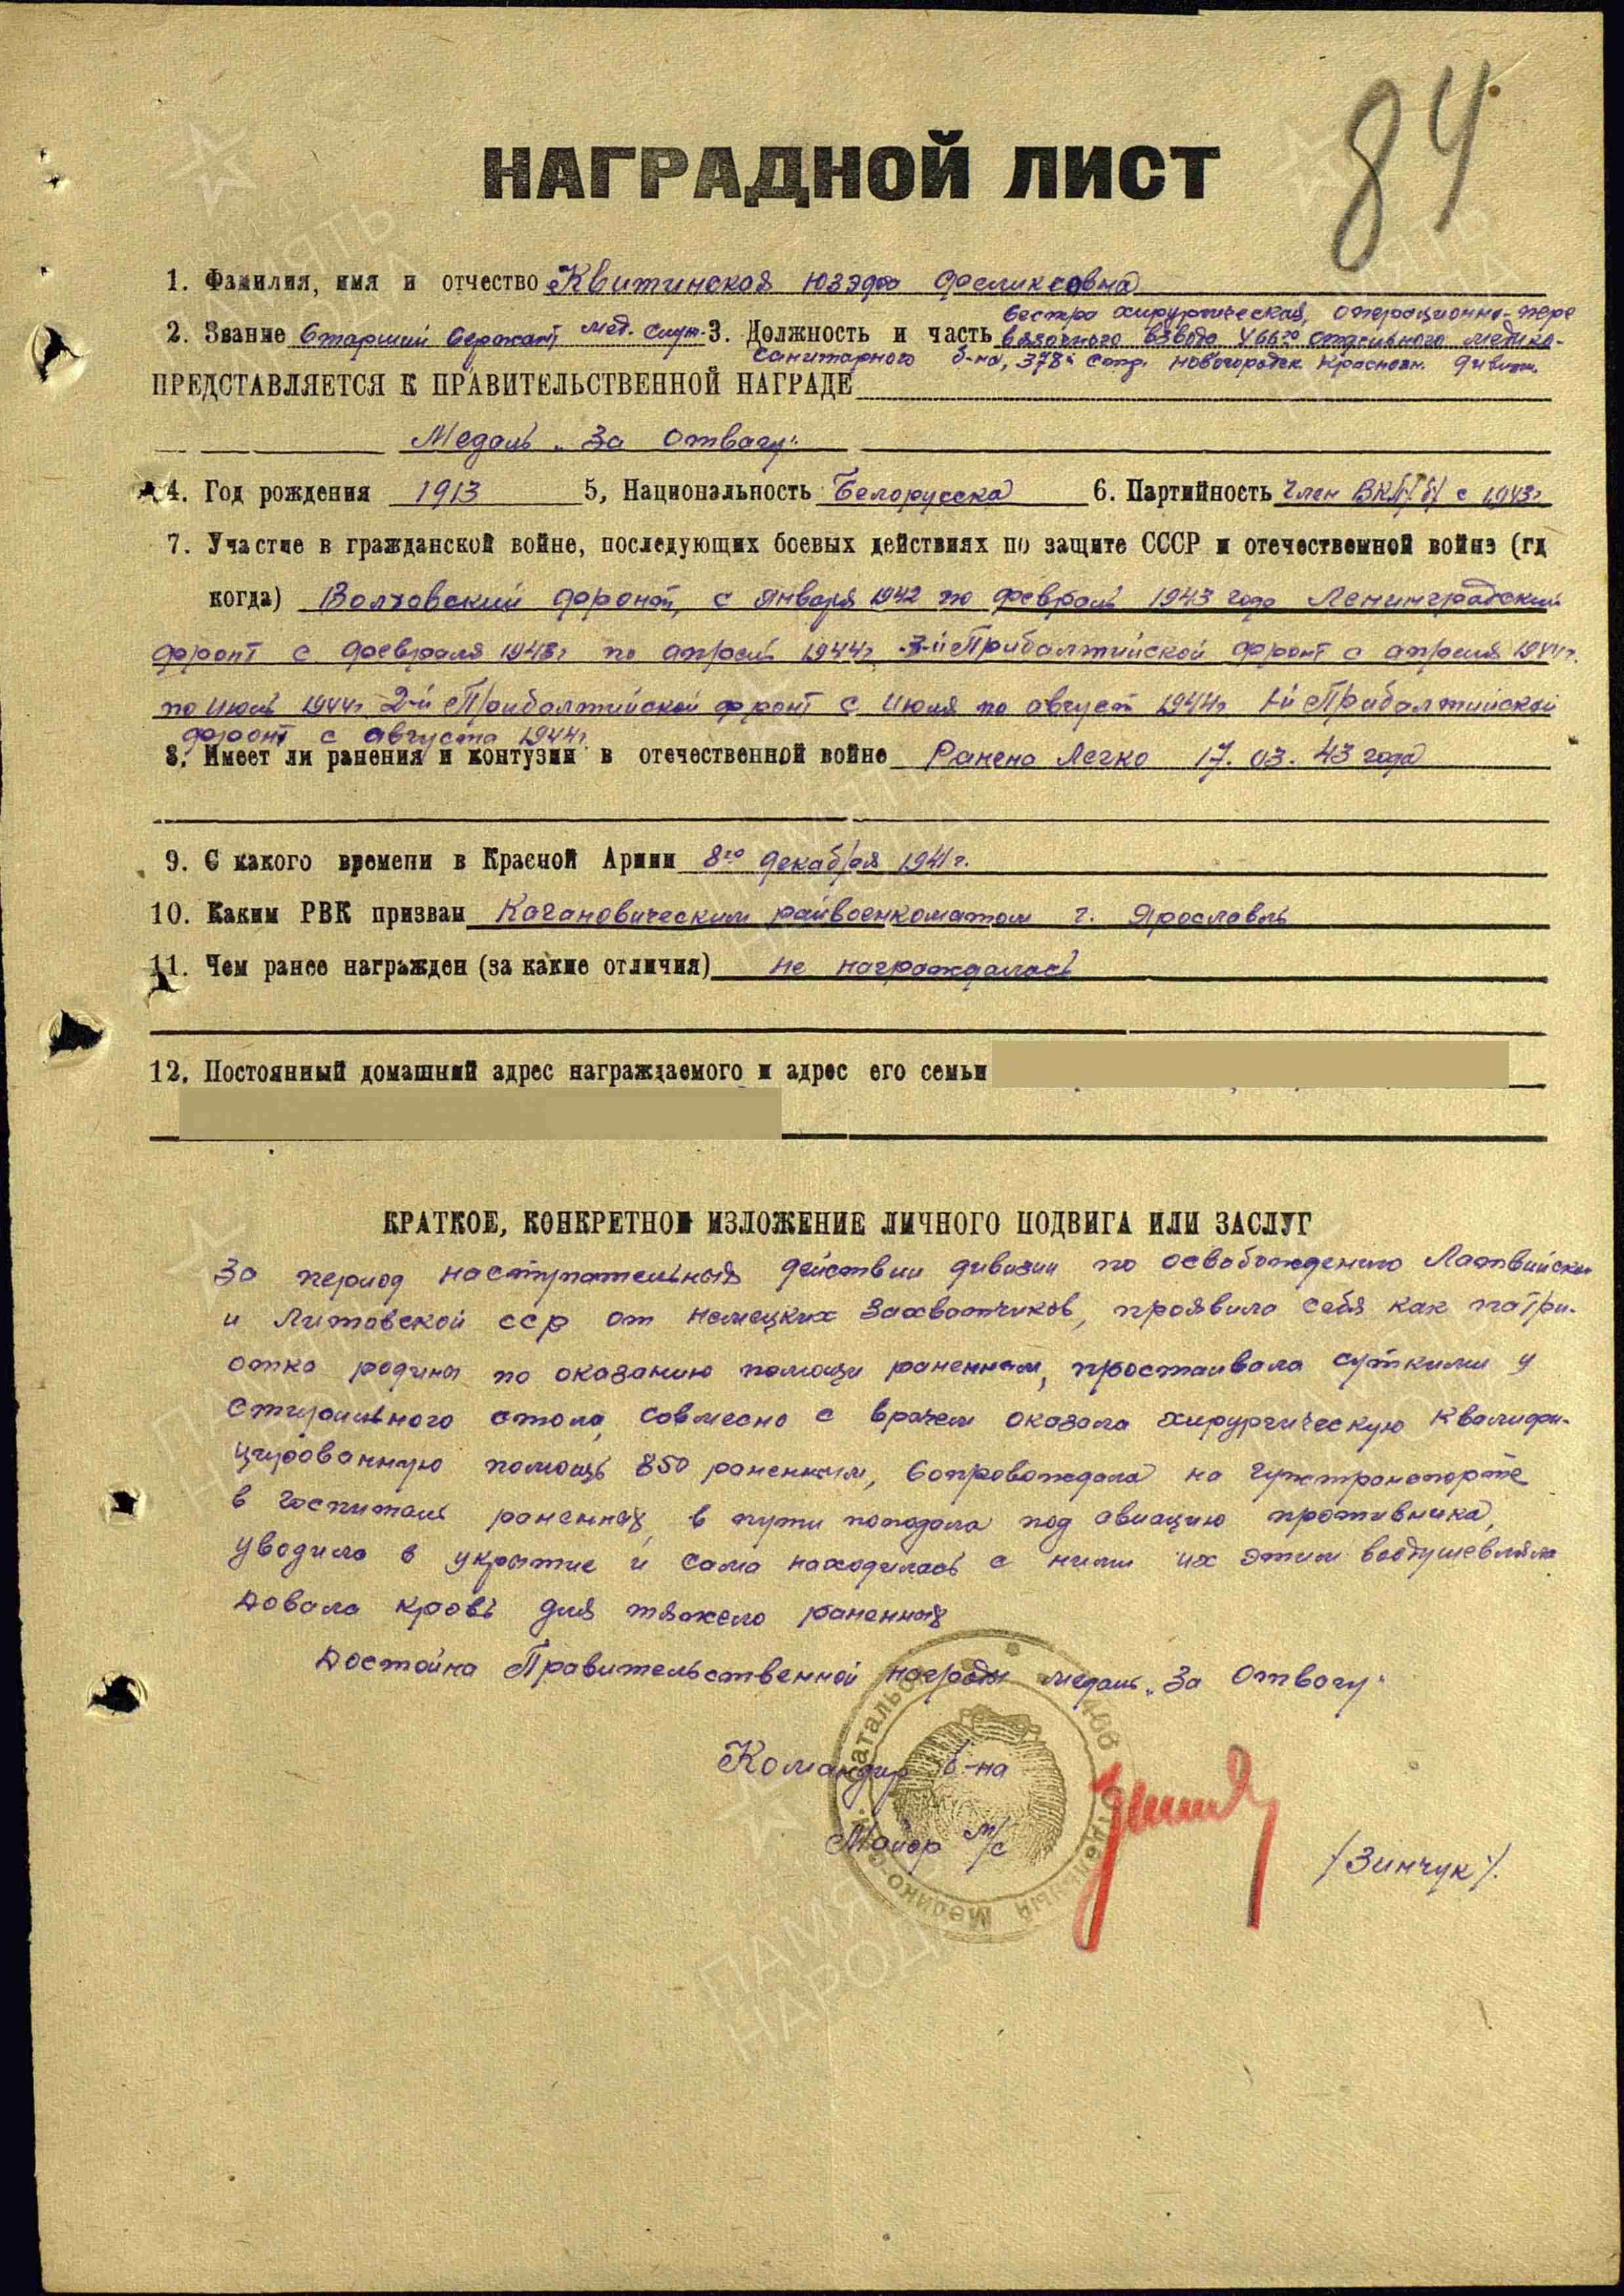 84
НАГРАДНОЙ ЛИСТ
1. Фамилия, имя и отчество Квитинская Юзэфа Феликсовна
сестра хирургическая, операционно-пере
2. Звание Старший сержант мед. служ. 3. Должность и часть вязочного взвода 466го отдельного медико-
санитарного б-на, 378й стр. Новгородск Краснозн. дивиз.
ПРЕДСТАВЛЯЕТСЯ К ПРАВИТЕЛЬСТВЕННОЙ НАГРАДЕ
Медаль „За отвагу"
4. Год рождения 1913 5, Национальность Белорусска 6. Партийность член ВКП/б/ с 1943г
7. Участие в гражданской войне, последующих боевых действиях по защите СССР и отечественной войне (гд
когда) Волховский фронт, с января 1942 по февраль 1943 года Ленинградский
фронт с февраля 1943г по апрель 1944г 3-й Прибалтийской фронт с апреля 1944г.
по июль 1944г 2-й Прибалтийской фронт с июля по август 1944г 1-й Прибалтийской
фронт с августа 1944г
8. Имеет ли ранения и контузии в отечественной войне Ранена Легко 17.03.43 года
9. С какого времени в Красной Армии 8го декабря 1941г.
10. Каким РВК призван Кагановическим райвоенкоматом г. Ярославль
11. Чем ранее награжден (за какие отличия) не награждалась
12. Постоянный домашний адрес награждаемого и адрес его семьи
КРАТКОЕ, КОНКРЕТНОЕ ИЗЛОЖЕНИЕ ЛИЧНОГО ПОДВИГА ИЛИ ЗАСЛУГ
За период наступательных действии дивизии по освобождению Латвийски
и Литовской сср от немецких захватчиков, проявила себя как патри-
отка родины по оказанию помощи раненным, простаивала сутками у
стирильного стола, совмесно с врачем оказала хирургическую квалифи-
цированную помощь 850 раненным, сопровождала на гужтранспорте
в госпиталь раненных, в пути попадала под авиацию противника,
уводила в укрытие и сама находилась с ними их этим воодушевляла
Давала кровь для тяжело раненных
Достойна Правительственной награды медаль „За Отвагу"
Командир б-на
Майор м/с
/Зинчук/.
Отдельный Медико-с Батальон
ПАМЯТЬ НАРОДА